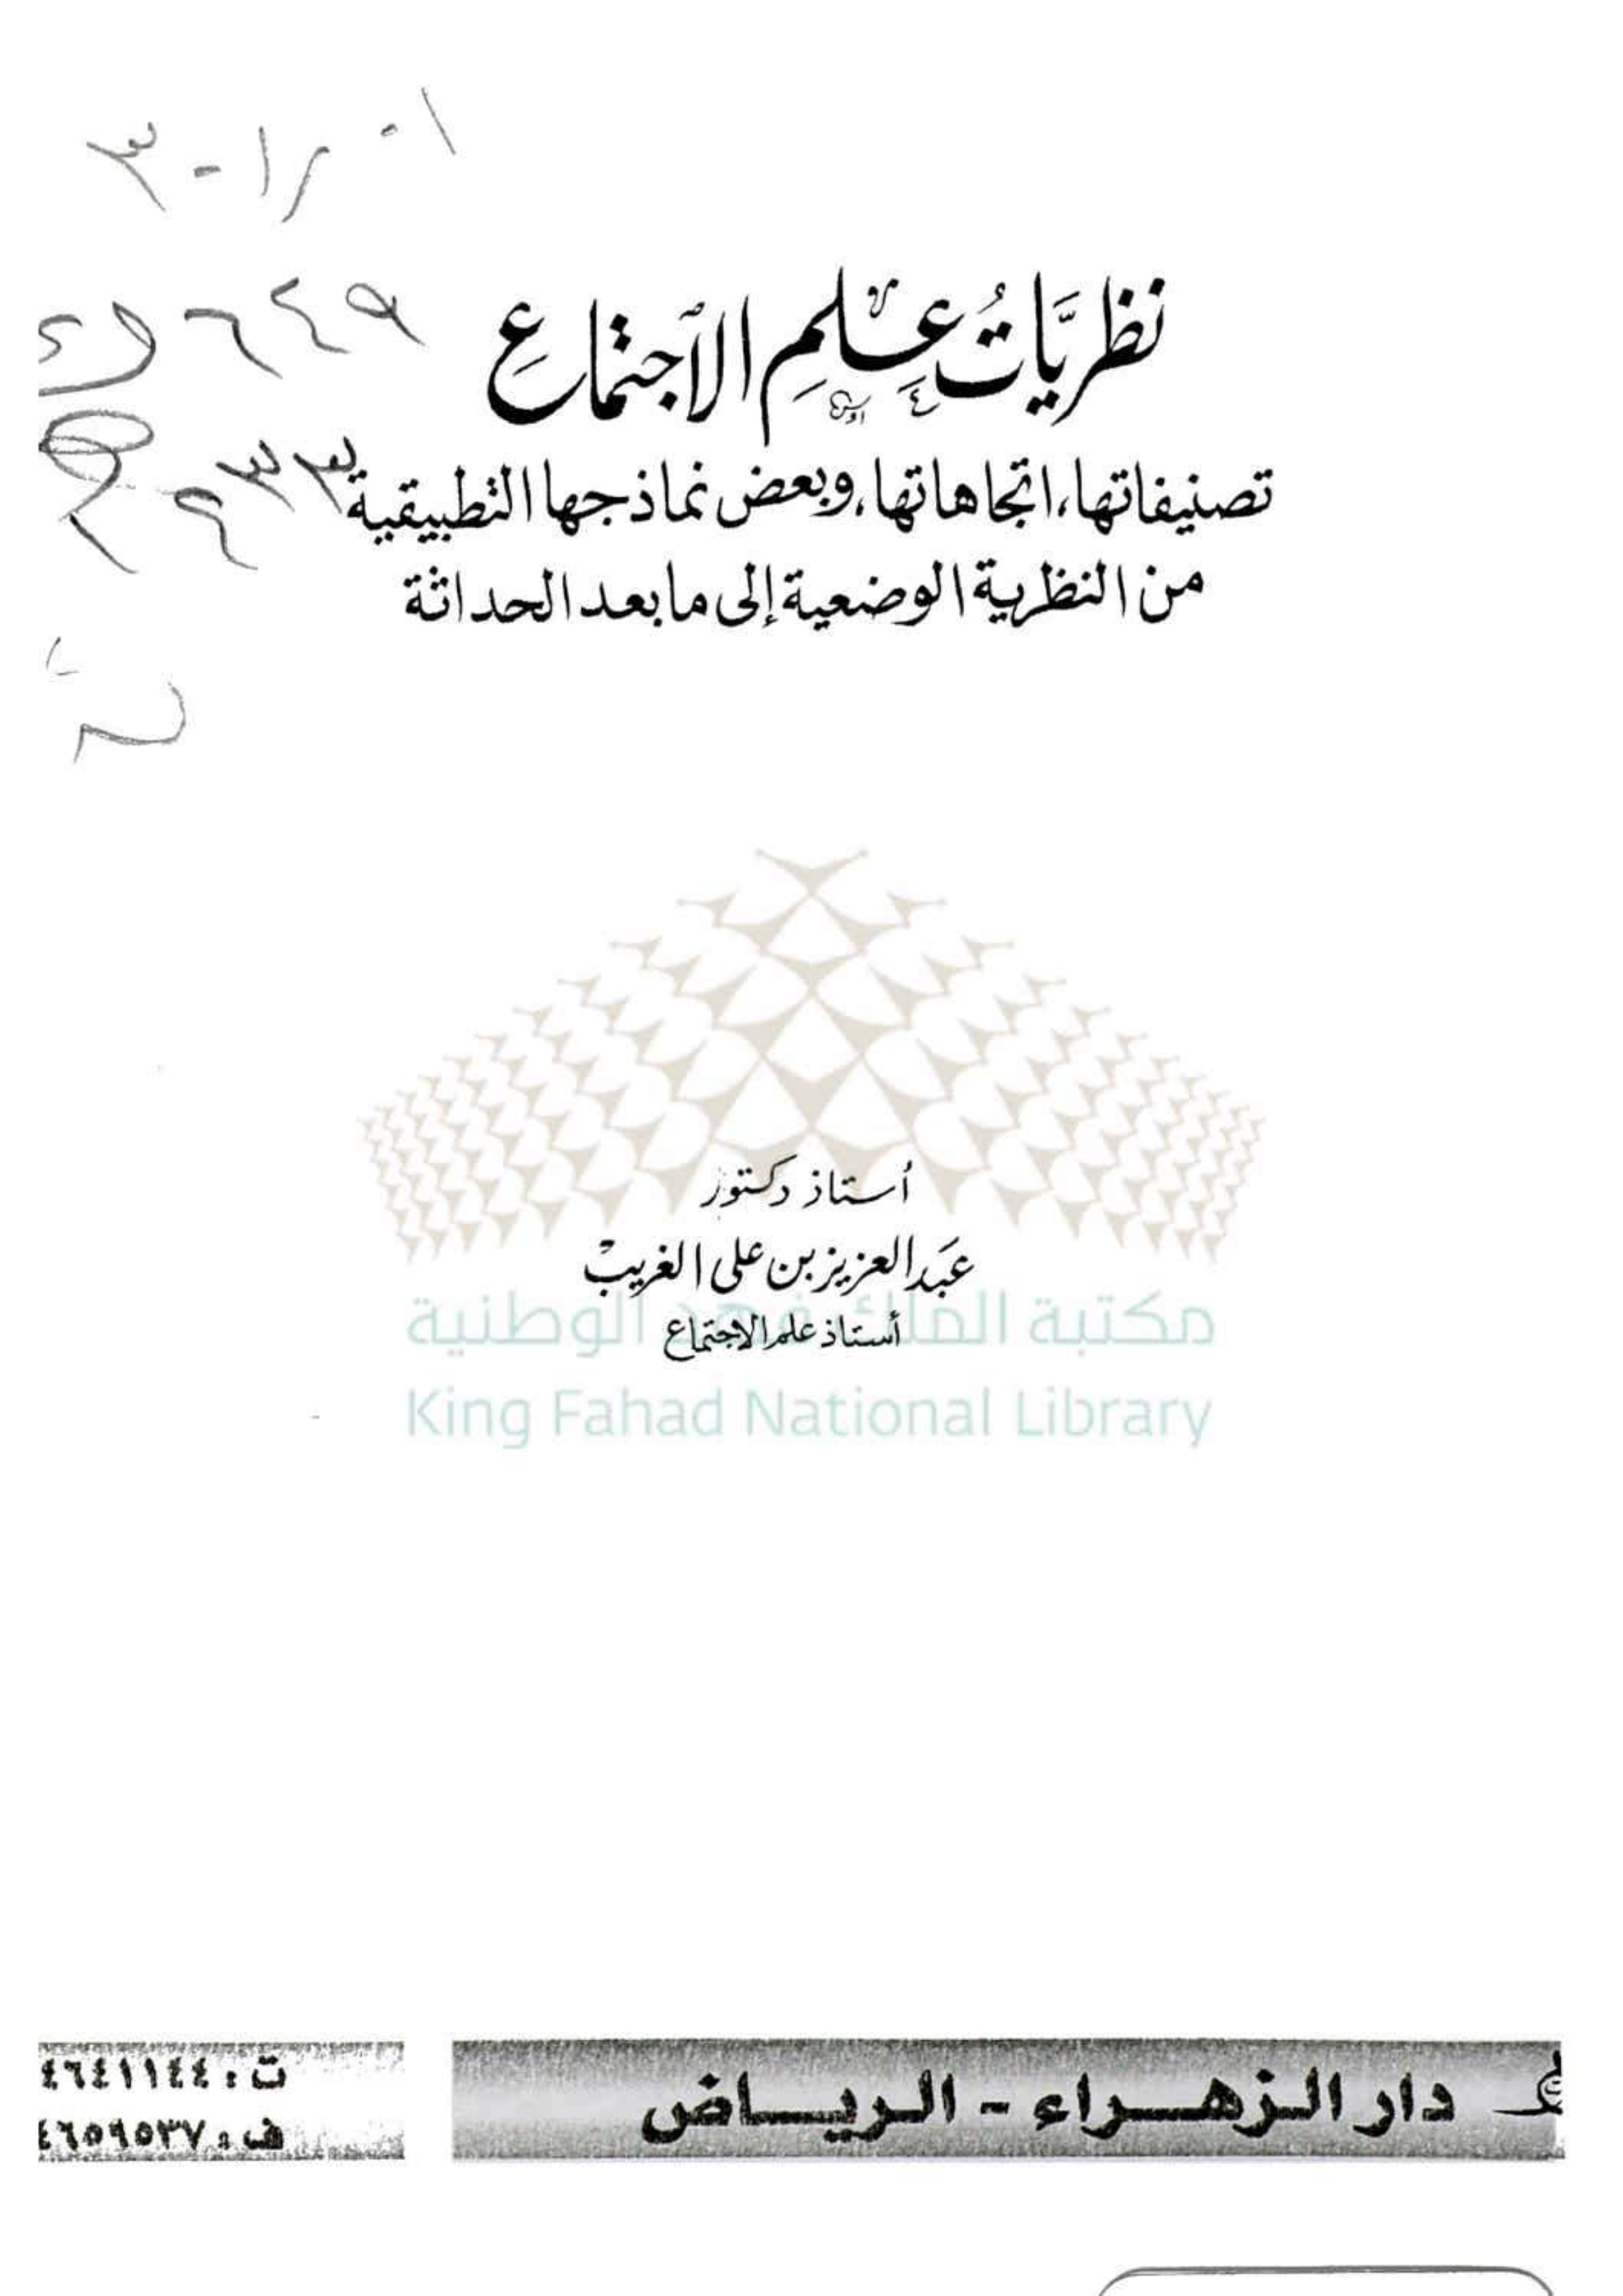 ٣٠١
نظريَّاتُ علمِ الاجتماعِ
تصنيفاتها، اتجاهاتها، وبعض نماذجها التطبيقية
من النظرية الوضعية إلى ما بعد الحداثة
أستاذ دكتور
عبدالعزيز بن علي الغريب
أستاذ علم الاجتماع
مكتبة الملك فهد الوطنية
King Fahad National Library
دار الزهراء - الرياض
ت: ٤٦٤١١٤٤
ف: ٤٦٥٩٥٣٧